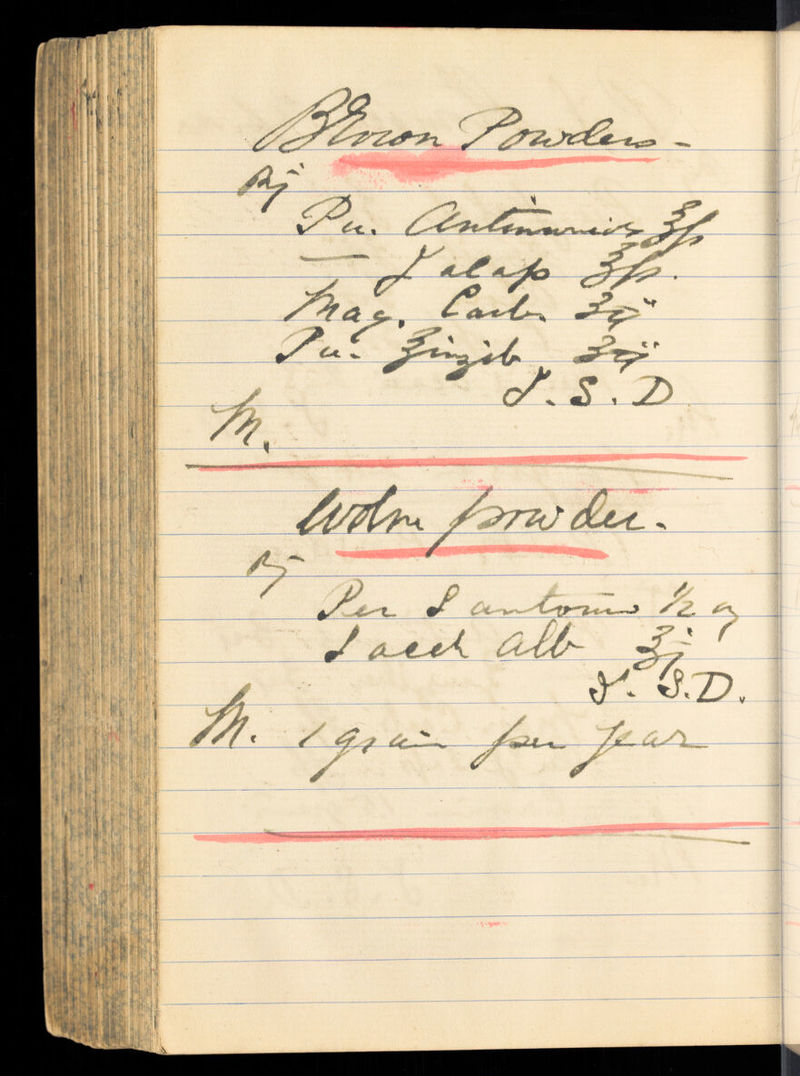 Powders -
Rx
Pu. Antimonials ʒfs
— Jalap ʒfs.
Mag. Carb. ʒij
Pu. Zinzib ʒij
J. S. D
M.
Worm powder.
Rx
Per Santonin ½ oz
Sacch Alb ℥j
J. S. D.
M. 1 grain per year